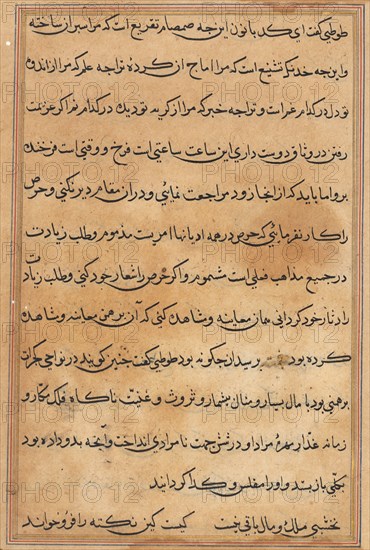 طوطی گفت ای کدبانون این چه صمصام تقریع است که مرا سپر از ساخته
و این چه خدنگ تشنیع است که مرا اماج آن کرده تو را چه علم که مرا از اندوه
تو دل در کدام غمر است و تو را چه خبر که مرا از کربه تو دیک در کدام فراکر عزیمت
رفتن در وثاق دوست داری این ساعت ساعتی است فرخ و وقتی است فرخنده
برو اما باید که از انجا زود مراجعت نمائی و در ان مقام دیر نکنی و حرص
را کار نفرمائی که حرص در همه ادیانها امریست مذموم و طلب زیادت
در جمیع مذاهب فعلی است شموم و اکر حرص را شعار خود کنی و طلب زیادت
را دثار خود کردانی همان معاینه و مشاهده کنی که آن برهمن معاینه و مشاهده
کرده بود پرسیدان چکونه بود طوطی گفت چنین کویند در نواحی کجرات
برهمنی بود با مال بسیار و منال بیشمار و ثروث و غنیت ناکاه فلک مکار و
زمانه غدار مهره مراد او در شش جهت نامرادی انداخت و آنچه بدو داده بود
بکلی باز ستد و او را مفلس و کدا کردانید
نخشبی ملک و مال باقی نیست کیست کین نکته را فروخواند
PHOTO12